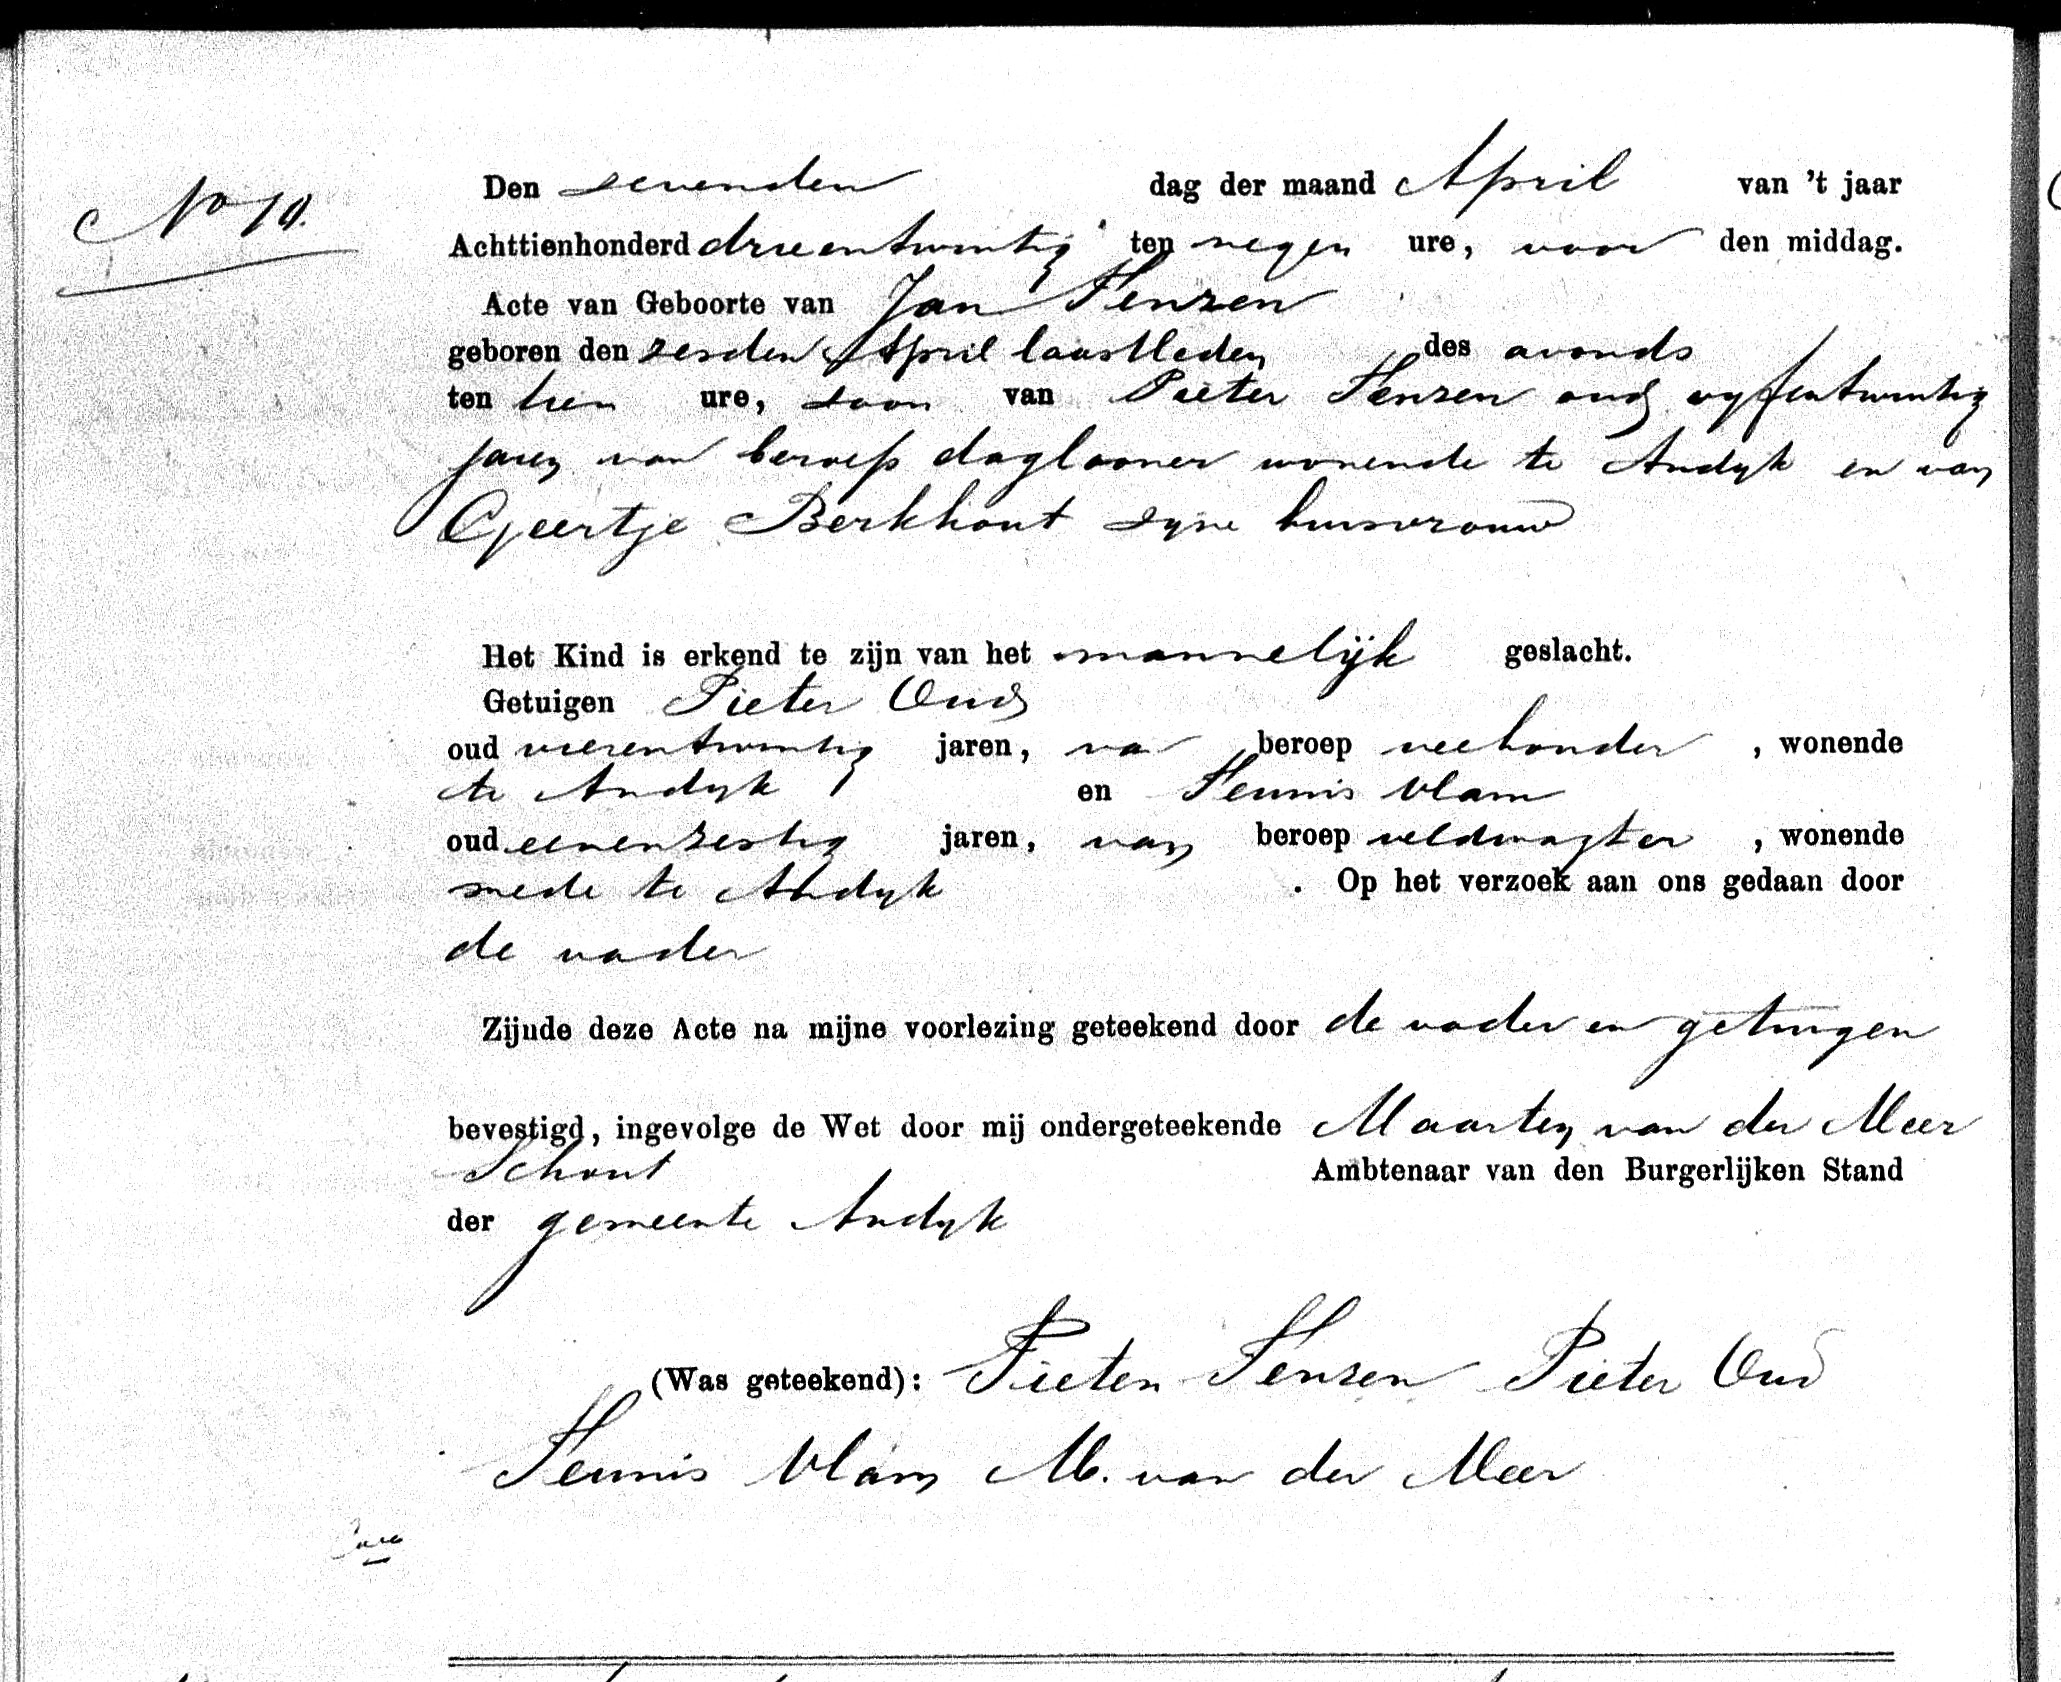 No 10.
Den sevenden dag der maand April van 't jaar
Achttienhonderd drieentwintig ten negen ure, voor den middag.
Acte van Geboorte van Jan Tensen
geboren den sesden April laastleden des avonds
ten tien ure, soon van Pieter Tensen oud vyfentwintig
jaren van beroep daglooner wonende te Andyk en van
Geertje Berkhout syne huisvrouw
Het Kind is erkend te zijn van het mannelijk geslacht.
Getuigen Pieter Oud
oud vierentwintig jaren, van beroep veehouder, wonende
te Andyk en Teunis Vlam
oud eenensestig jaren, van beroep veldwagter, wonende
mede te Andyk. Op het verzoek aan ons gedaan door
de vader
Zijnde deze Acte na mijne voorlezing geteekend door de vader en getuigen
bevestigd, ingevolge de Wet door mij ondergeteekende Maarten van der Meer
Schout Ambtenaar van den Burgerlijken Stand
der gemeente Andyk
(Was geteekend): Pieter Tensen Pieter Oud
Teunis Vlam M. van der Meer